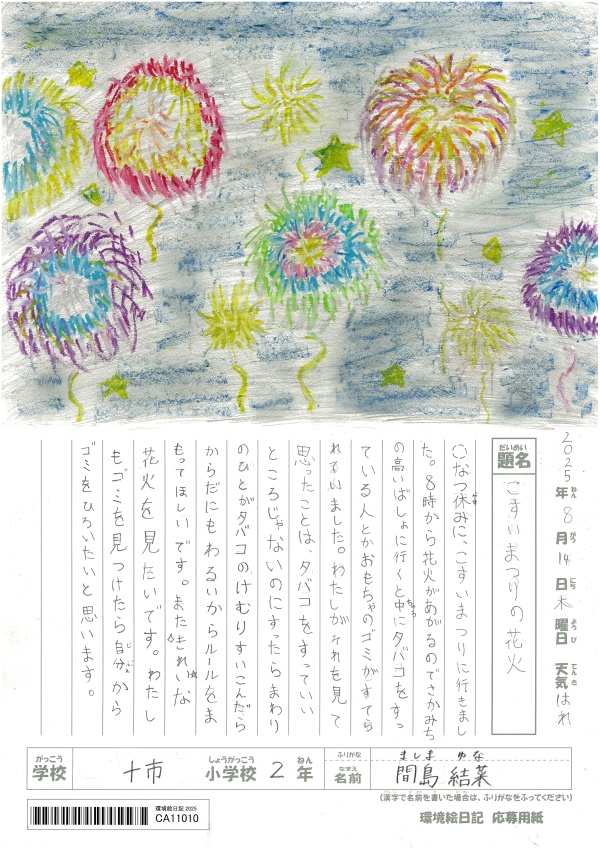 2025年8月14日木曜日 天気はれ
ねん がつ にち ようび てんき
だいめい
題名
こすいまつりの花火
○なつ休みに、こすいまつりに行きまし
た。8時から花火があがるのでさかみち
の高いばしょに行くと中にタバコをすっ
ている人とかおもちゃのゴミがすてら
れていました。わたしがそれを見て
思ったことは、タバコをすっていい
ところじゃないのにすったらまわり
のひとがタバコのけむりすいこんだら
からだにもわるいからルールをま
もってほしいです。またきれいな
花火を見たいです。わたし
もゴミを見つけたら自分から
ゴミをひろいたいと思います。
がっこう しょうがっこう ねん
学校 十市 小学校 2年
ふりがな ましま ゆな
なまえ
名前 間島 結菜
(漢字で名前を書いた場合は、ふりがなをふってください)
環境絵日記 2025
CA11010
環境絵日記 応募用紙